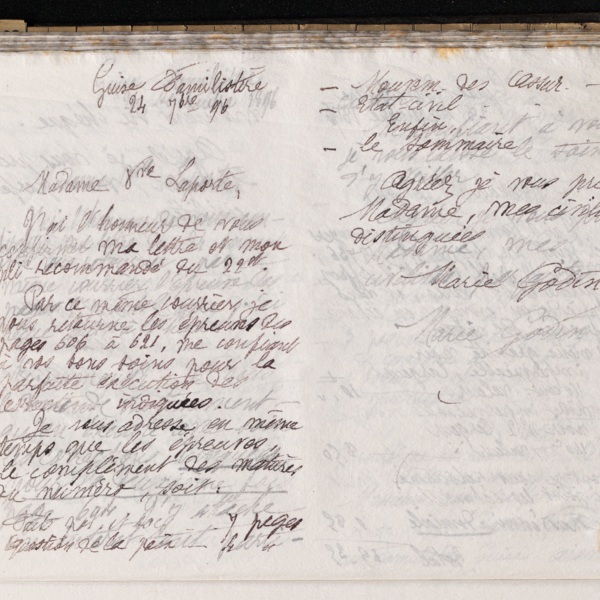 Guise Familistère
24 7bre 96
Madame Vve Laporte,
J'ai l'honneur de vous
confirmer ma lettre et mon
pli recommandé du 22 ct.
Par ce même courrier, je
vous retourne les épreuves des
pages 606 à 621, me confiant
à vos bons soins pour la
parfaite exécution des
corrections indiquées.
Je vous adresse en même
temps que les épreuves,
le complément des matières
du numéro, soit:
7 pages
question de la paix
— Mouvem. des Assur. —
— Etat-civil
Enfin,
— le Sommaire
Agréez, je vous prie
Madame, mes civilités
distinguées
Marie Godin